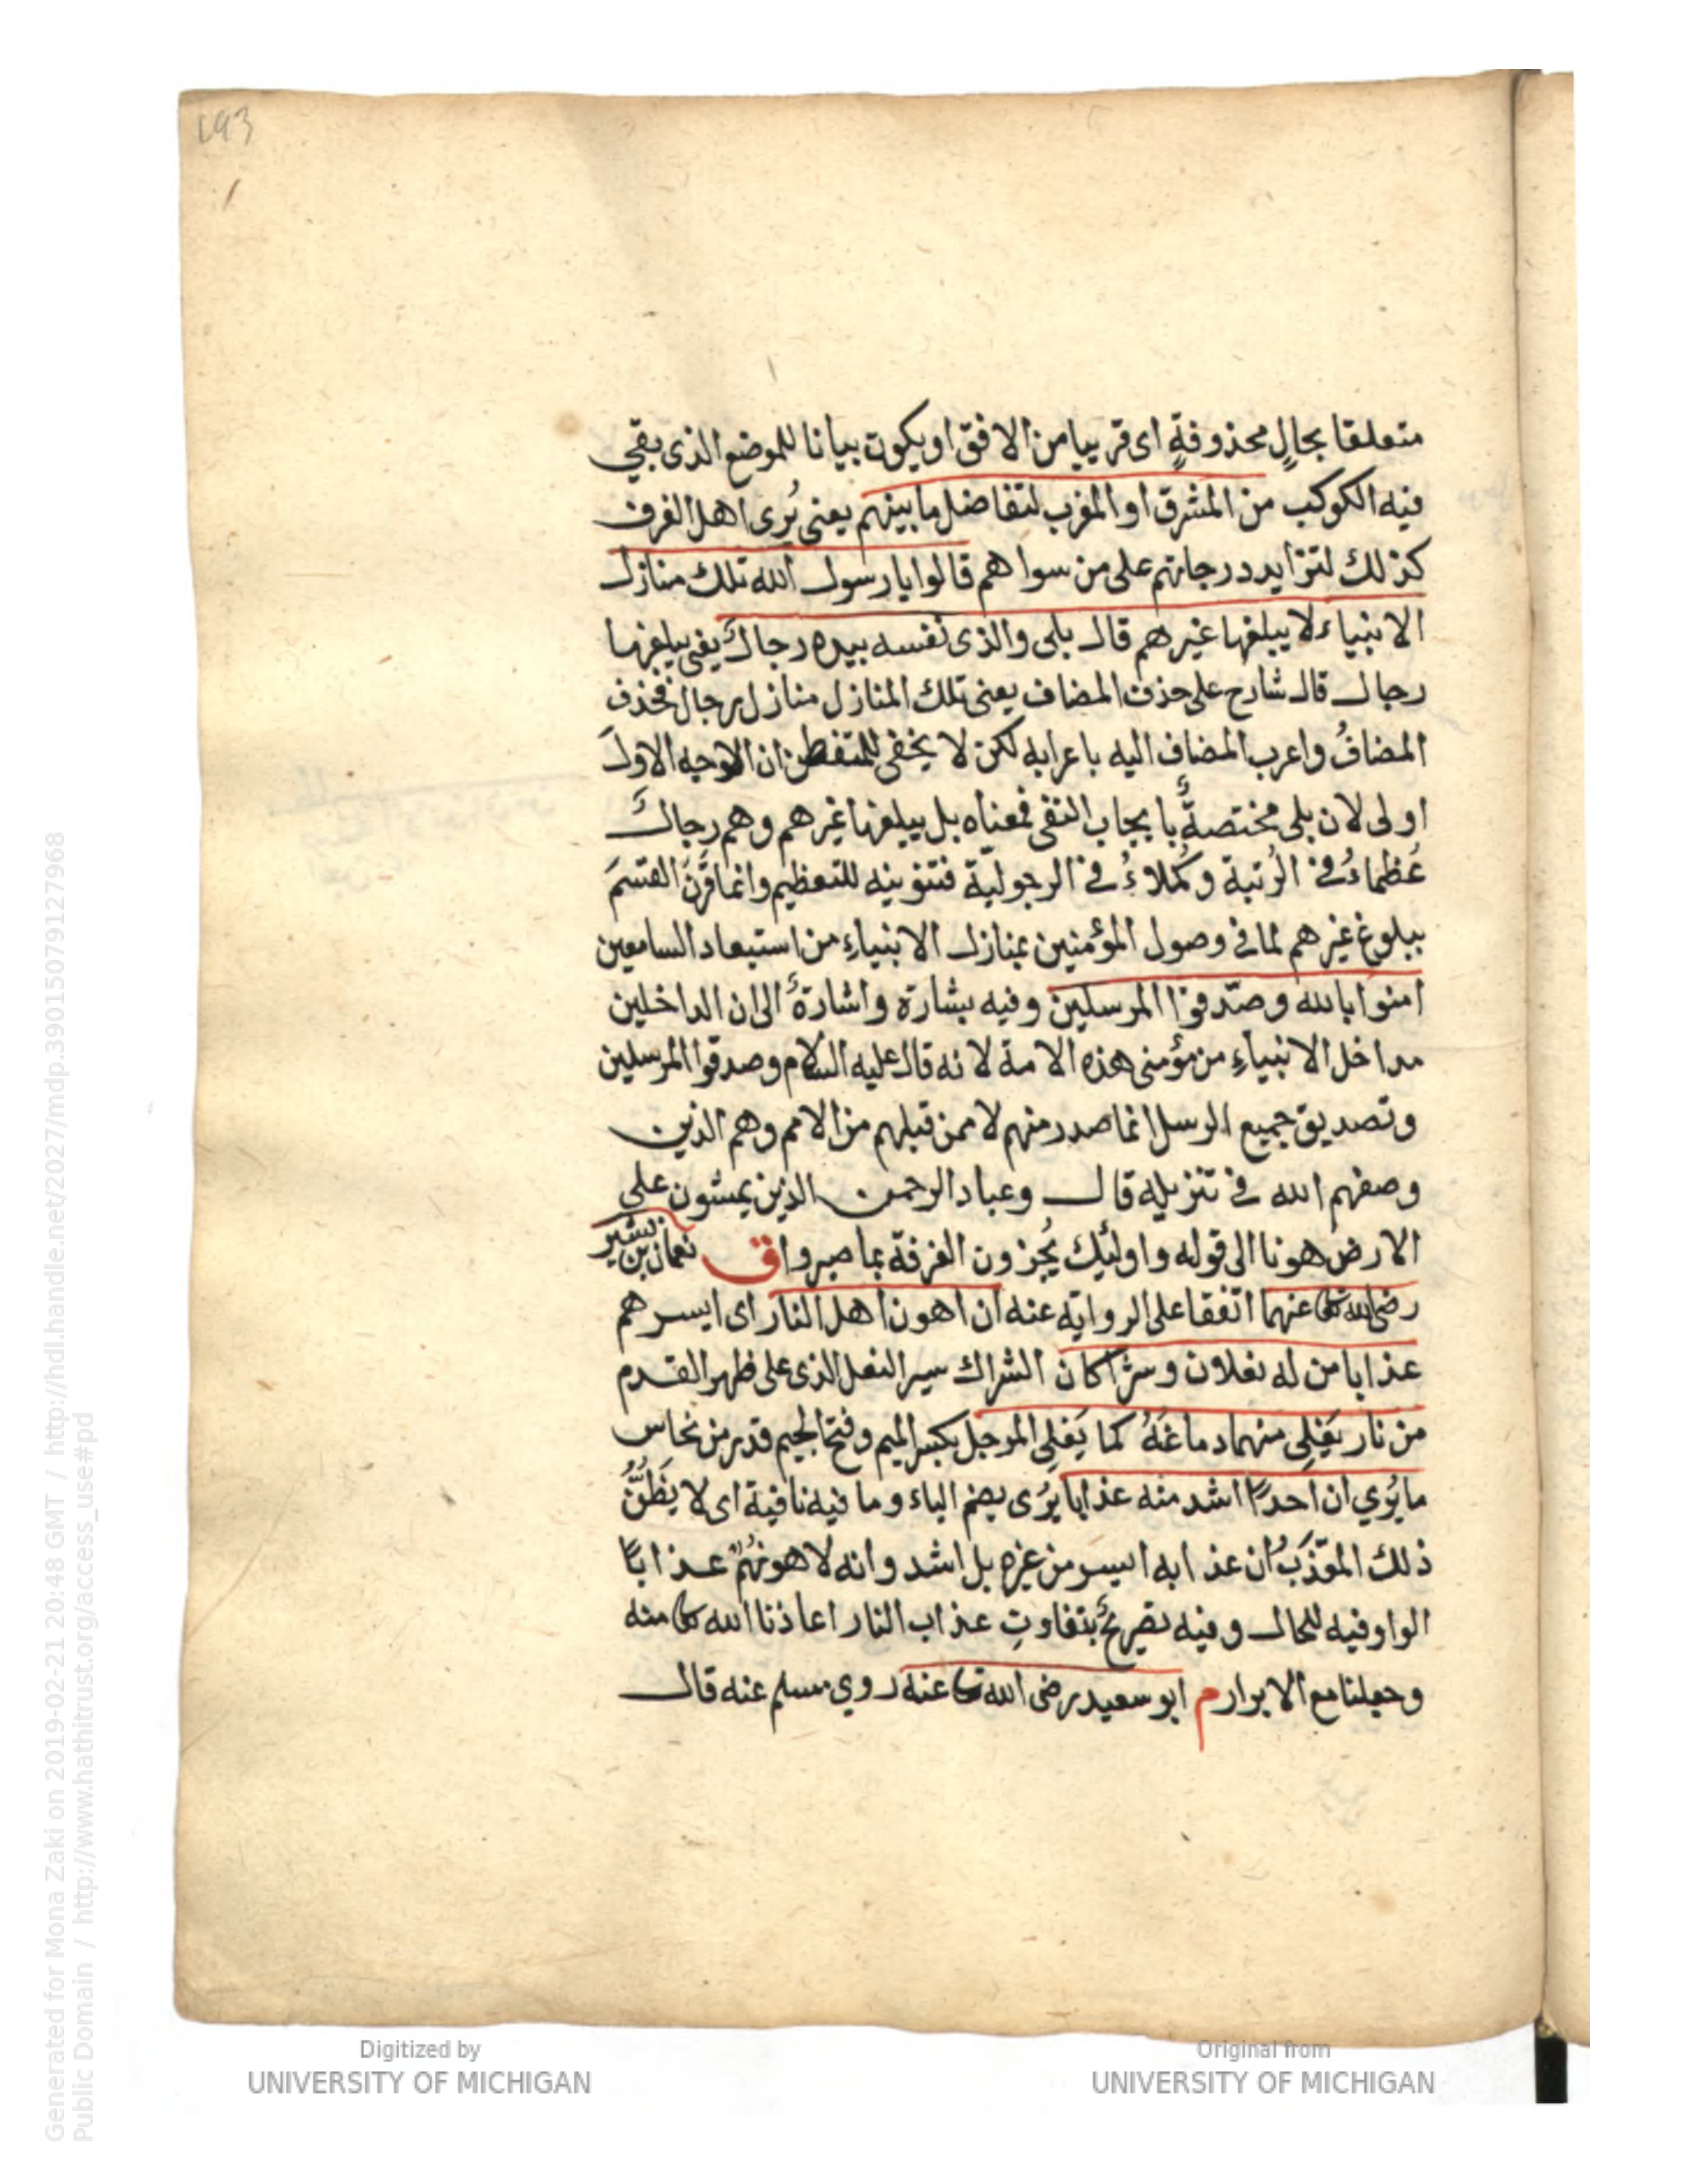 193
متعلقا بحالٍ محذوفةٍ اى قريبا من الافق او يكون بيانا للموضع الذى بقى
فيه الكوكب من المشرق او المغرب لتفاضل ما بينهم يعنى يُرى اهل الغرف
كذلك لتزايد درجاتهم على من سواهم قالوا يا رسول الله تلك منازل
الانبياء لا يبلغها غيرهم قال بلى والذى نفسه بيده رجالٌ يعنى يبلغها
رجال قال شارح على حذف المضاف يعنى تلك المنازل منازل رجال فحذف
المضافُ واعرب المضاف اليه باعرابه لكن لا يخفى للمتفطن ان الوجه الاولَ
اولى لان بلى مختصةٌ بايجاب النفى فمعناه بل يبلغها غيرهم وهم رجالٌ
عُظماءُ فى الرُتبة وكُملاءُ فى الرجولية فتنوينه للتعظيم وانما قَرَنَ القسَمَ
ببلوغ غيرهم لما فى وصول المؤمنين بمنازل الانبياءِ من استبعاد السامعين
امنوا بالله وصدّقوا المرسلين وفيه بشارة واشارةٌ الى ان الداخلين
مداخل الانبياءِ من مؤمنى هذه الامة لانه قال عليه السلام وصدقوا المرسلين
وتصديق جميع الرسل انما صدر منهم لا ممن قبلهم من الامم وهم الذين
وصفهم الله فى تنزيله قال وعباد الرحمن الذين يمشون على
الارض هونا الى قوله واولئِك يُجزون الغرفة بما صبروا ق نعمان بن بشير
رضى الله تعالى عنهما اتفقا على الرواية عنه ان اهون اهل النار اى ايسرهم
عذابا من له نعلان وشراكان الشراك سير النعل الذى على ظهر القدم
من نار يَغلِى منهما دماغُهُ كما يَغلِى المرجل بكسر الميم وفتح الجيم قدر من نحاس
ما يُري ان احدًا اشد منه عذابا يُرى بضم الياء وما فيه نافية اى لا يَظُنُّ
ذلك المعَذَّبُ ان عذابه ايسر من غيره بل اشد وانه لاهونُهُم عذابًا
الواو فيه للحال وفيه تصريحٌ بتفاوتِ عذاب النار اعاذنا الله تعالى منه
وجعلنا مع الابرار م ابو سعيد رضى الله تعالى عنه روي مسلم عنه قال
Generated for Mona Zaki on 2019-02-21 20:48 GMT / http://hdl.handle.net/2027/mdp.39015079127968
Public Domain / http://www.hathitrust.org/access_use#pd
Digitized by
UNIVERSITY OF MICHIGAN
Original from
UNIVERSITY OF MICHIGAN